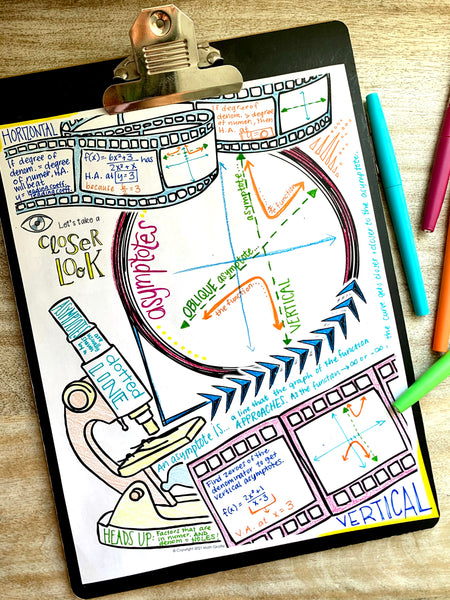 HORIZONTAL
If degree of
denom. = degree
of numer, H.A.
will be at
f(x) = 6x²+3 has
2x²+x
H.A. at y=3
because 6/2 = 3
If degree of
denom. > degree
of numer, then
H.A. at
y=0
Let's take a
CLOSER
LOOK
asymptotes
asymptote
the function
OBLIQUE asymptote
the function
VERTICAL
ASYMPTOTE
dotted
LINE
An asymptote IS... a line that the graph of the function
APPROACHES. As the function → ∞ or -∞
the curve gets closer & closer to the asymptote.
Find zeroes of the
denominator to get
vertical asymptotes.
f(x) = 2x²+1
x-3
V.A. at x=3
VERTICAL
HEADS UP: Factors that are
in numer. AND
denom = HOLES!
© Copyright 2021 Math Giraffe